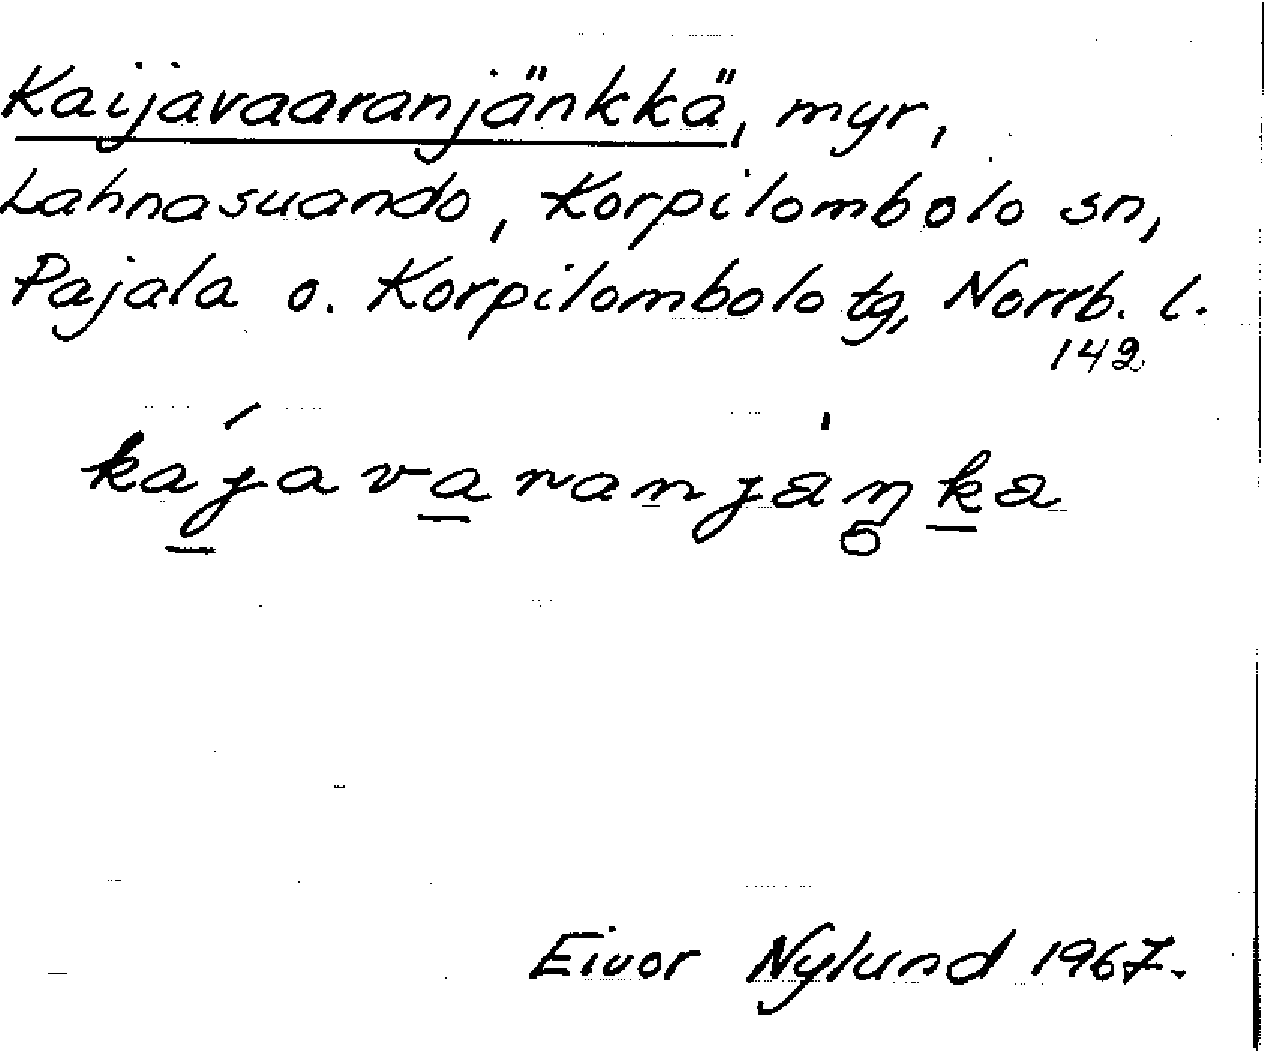 Kaijavaaranjänkkä, myr,
Lahnasuando, Korpilombolo sn,
Pajala o. Korpilombolo tg, Norrb. l.
142
Eivor Nylund 1967.